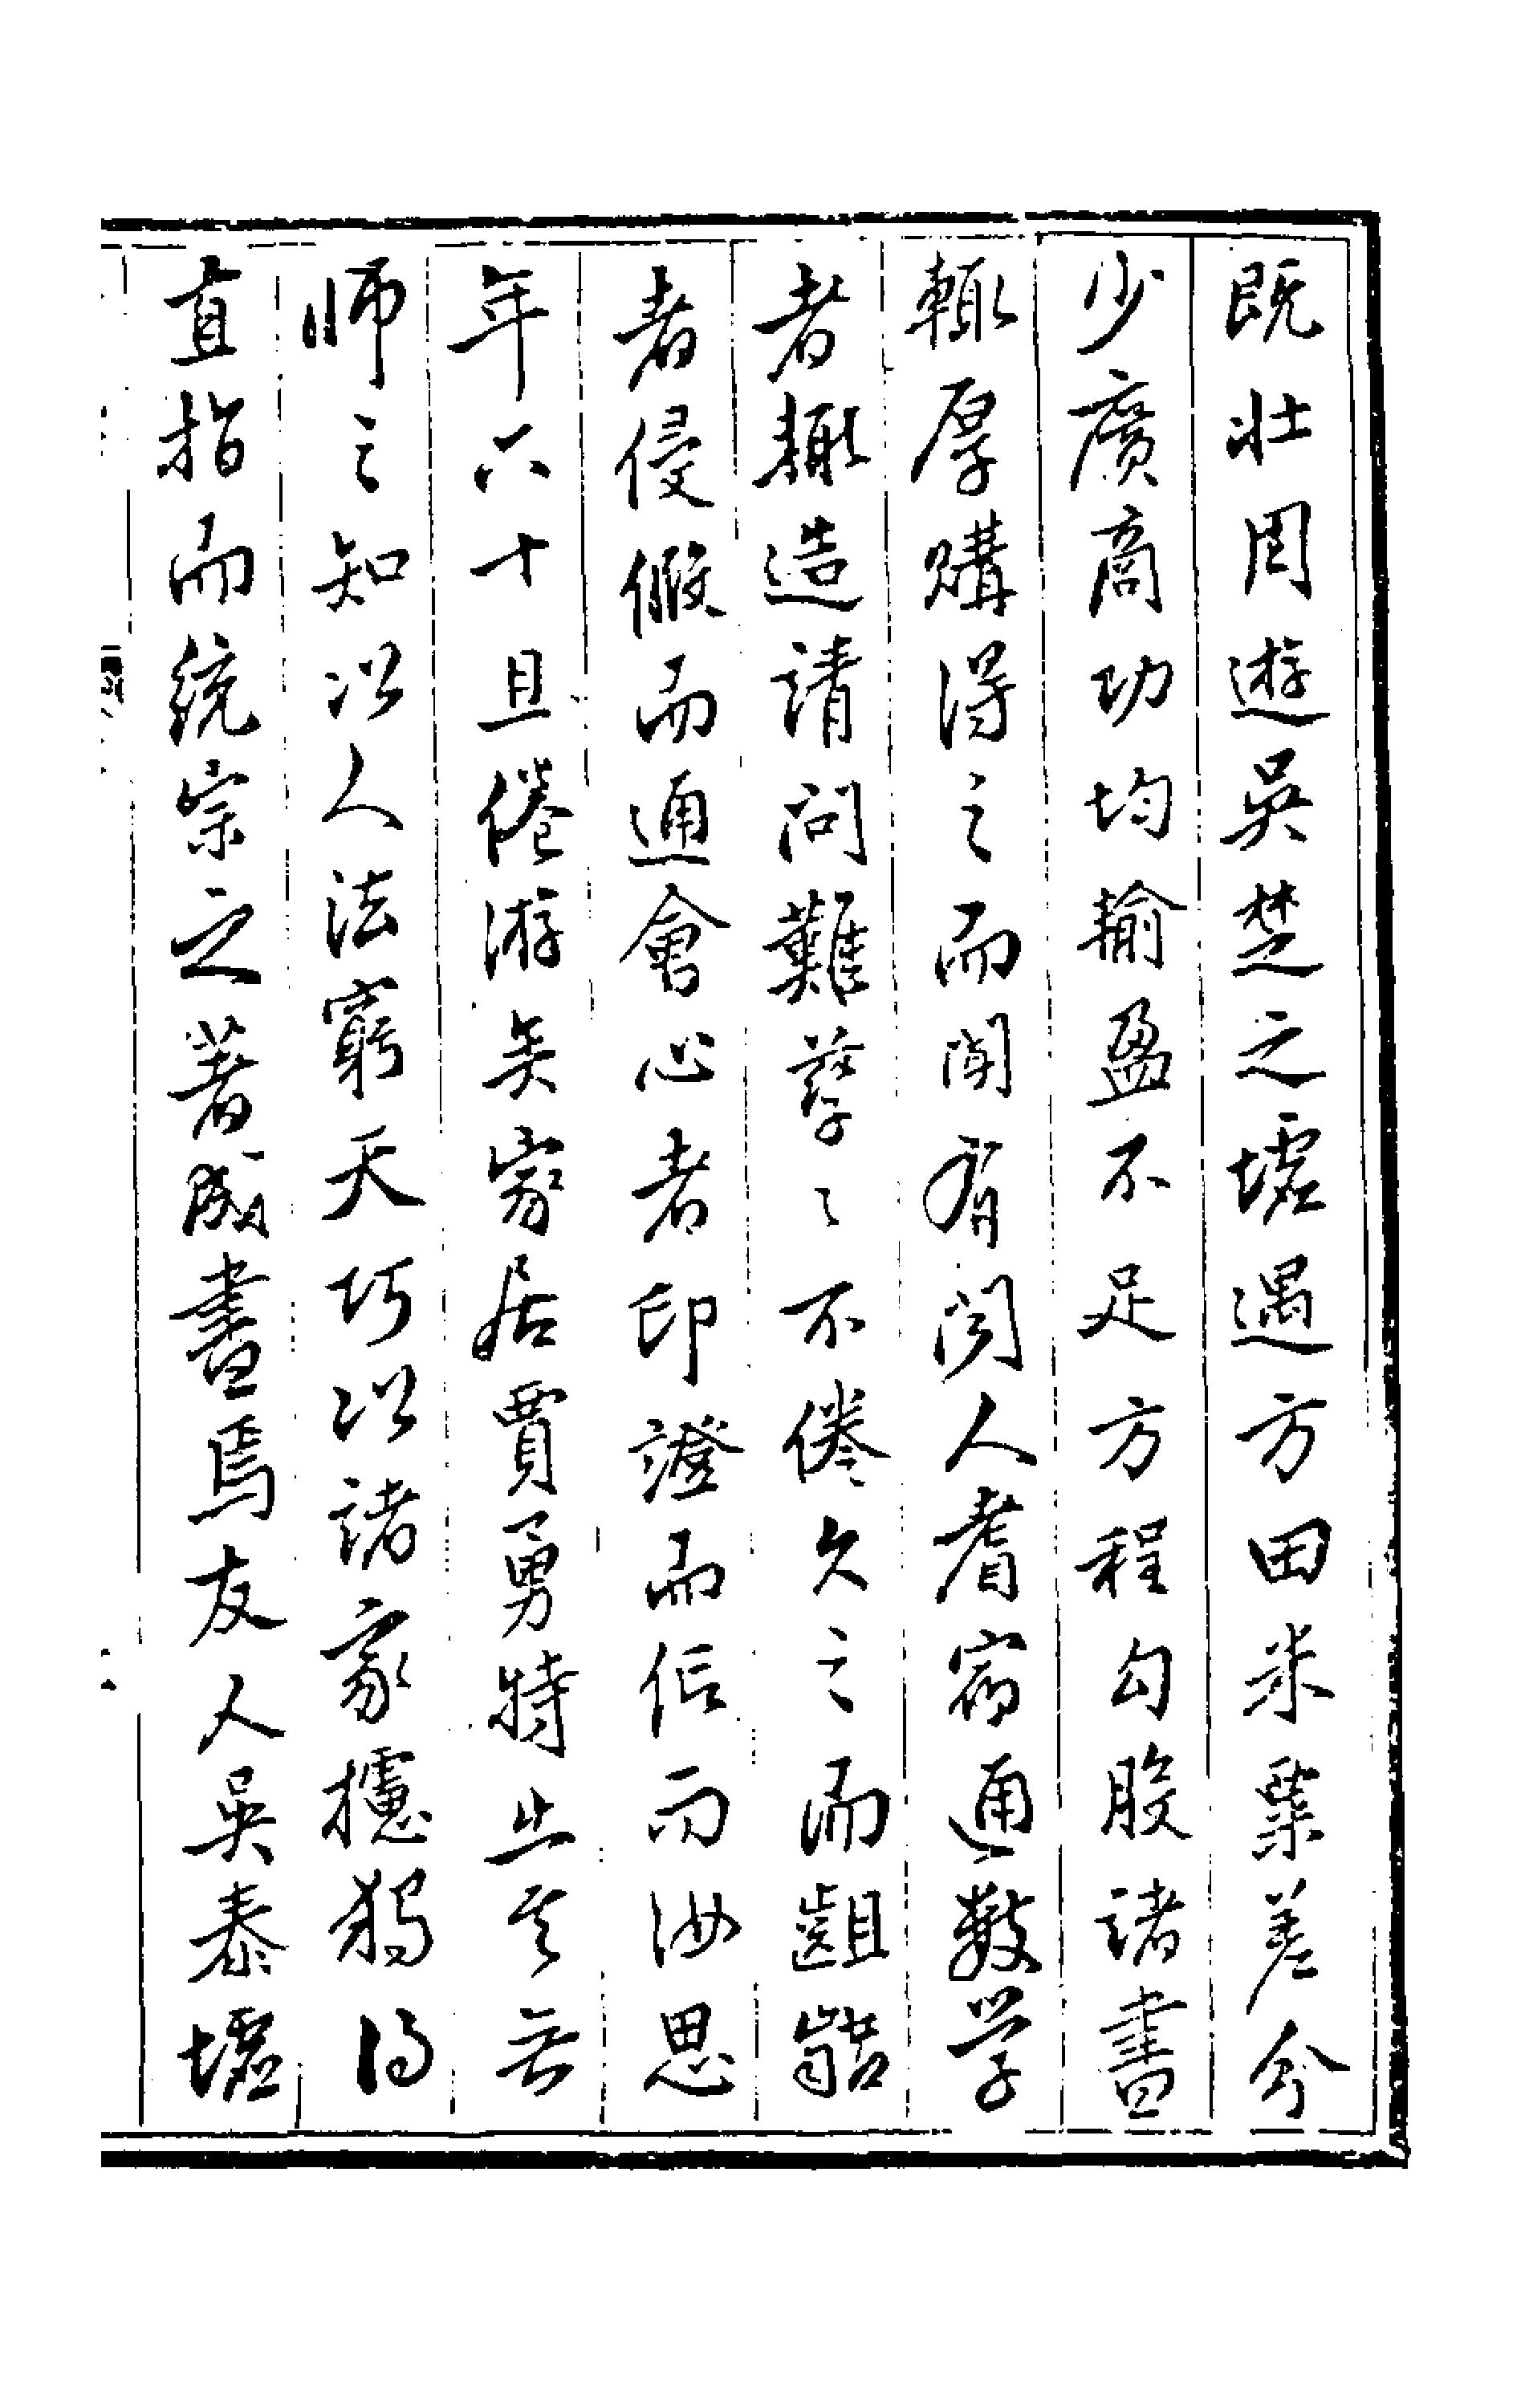 既壯周遊吳楚之墟遇方田米粟差分
少廣商功均輸盈不足方程勾股諸書
輒厚購得之而間有聞人耆宿通數學
者輒造請問難孳〻不倦久之而齟齬
者侵假而通會心者印證而信而汝思
年六十且倦游矣家居賈勇特出其無
師之知以人法窮天巧以諸家攄獨得
直指而統宗之著成書焉友人吳泰墟